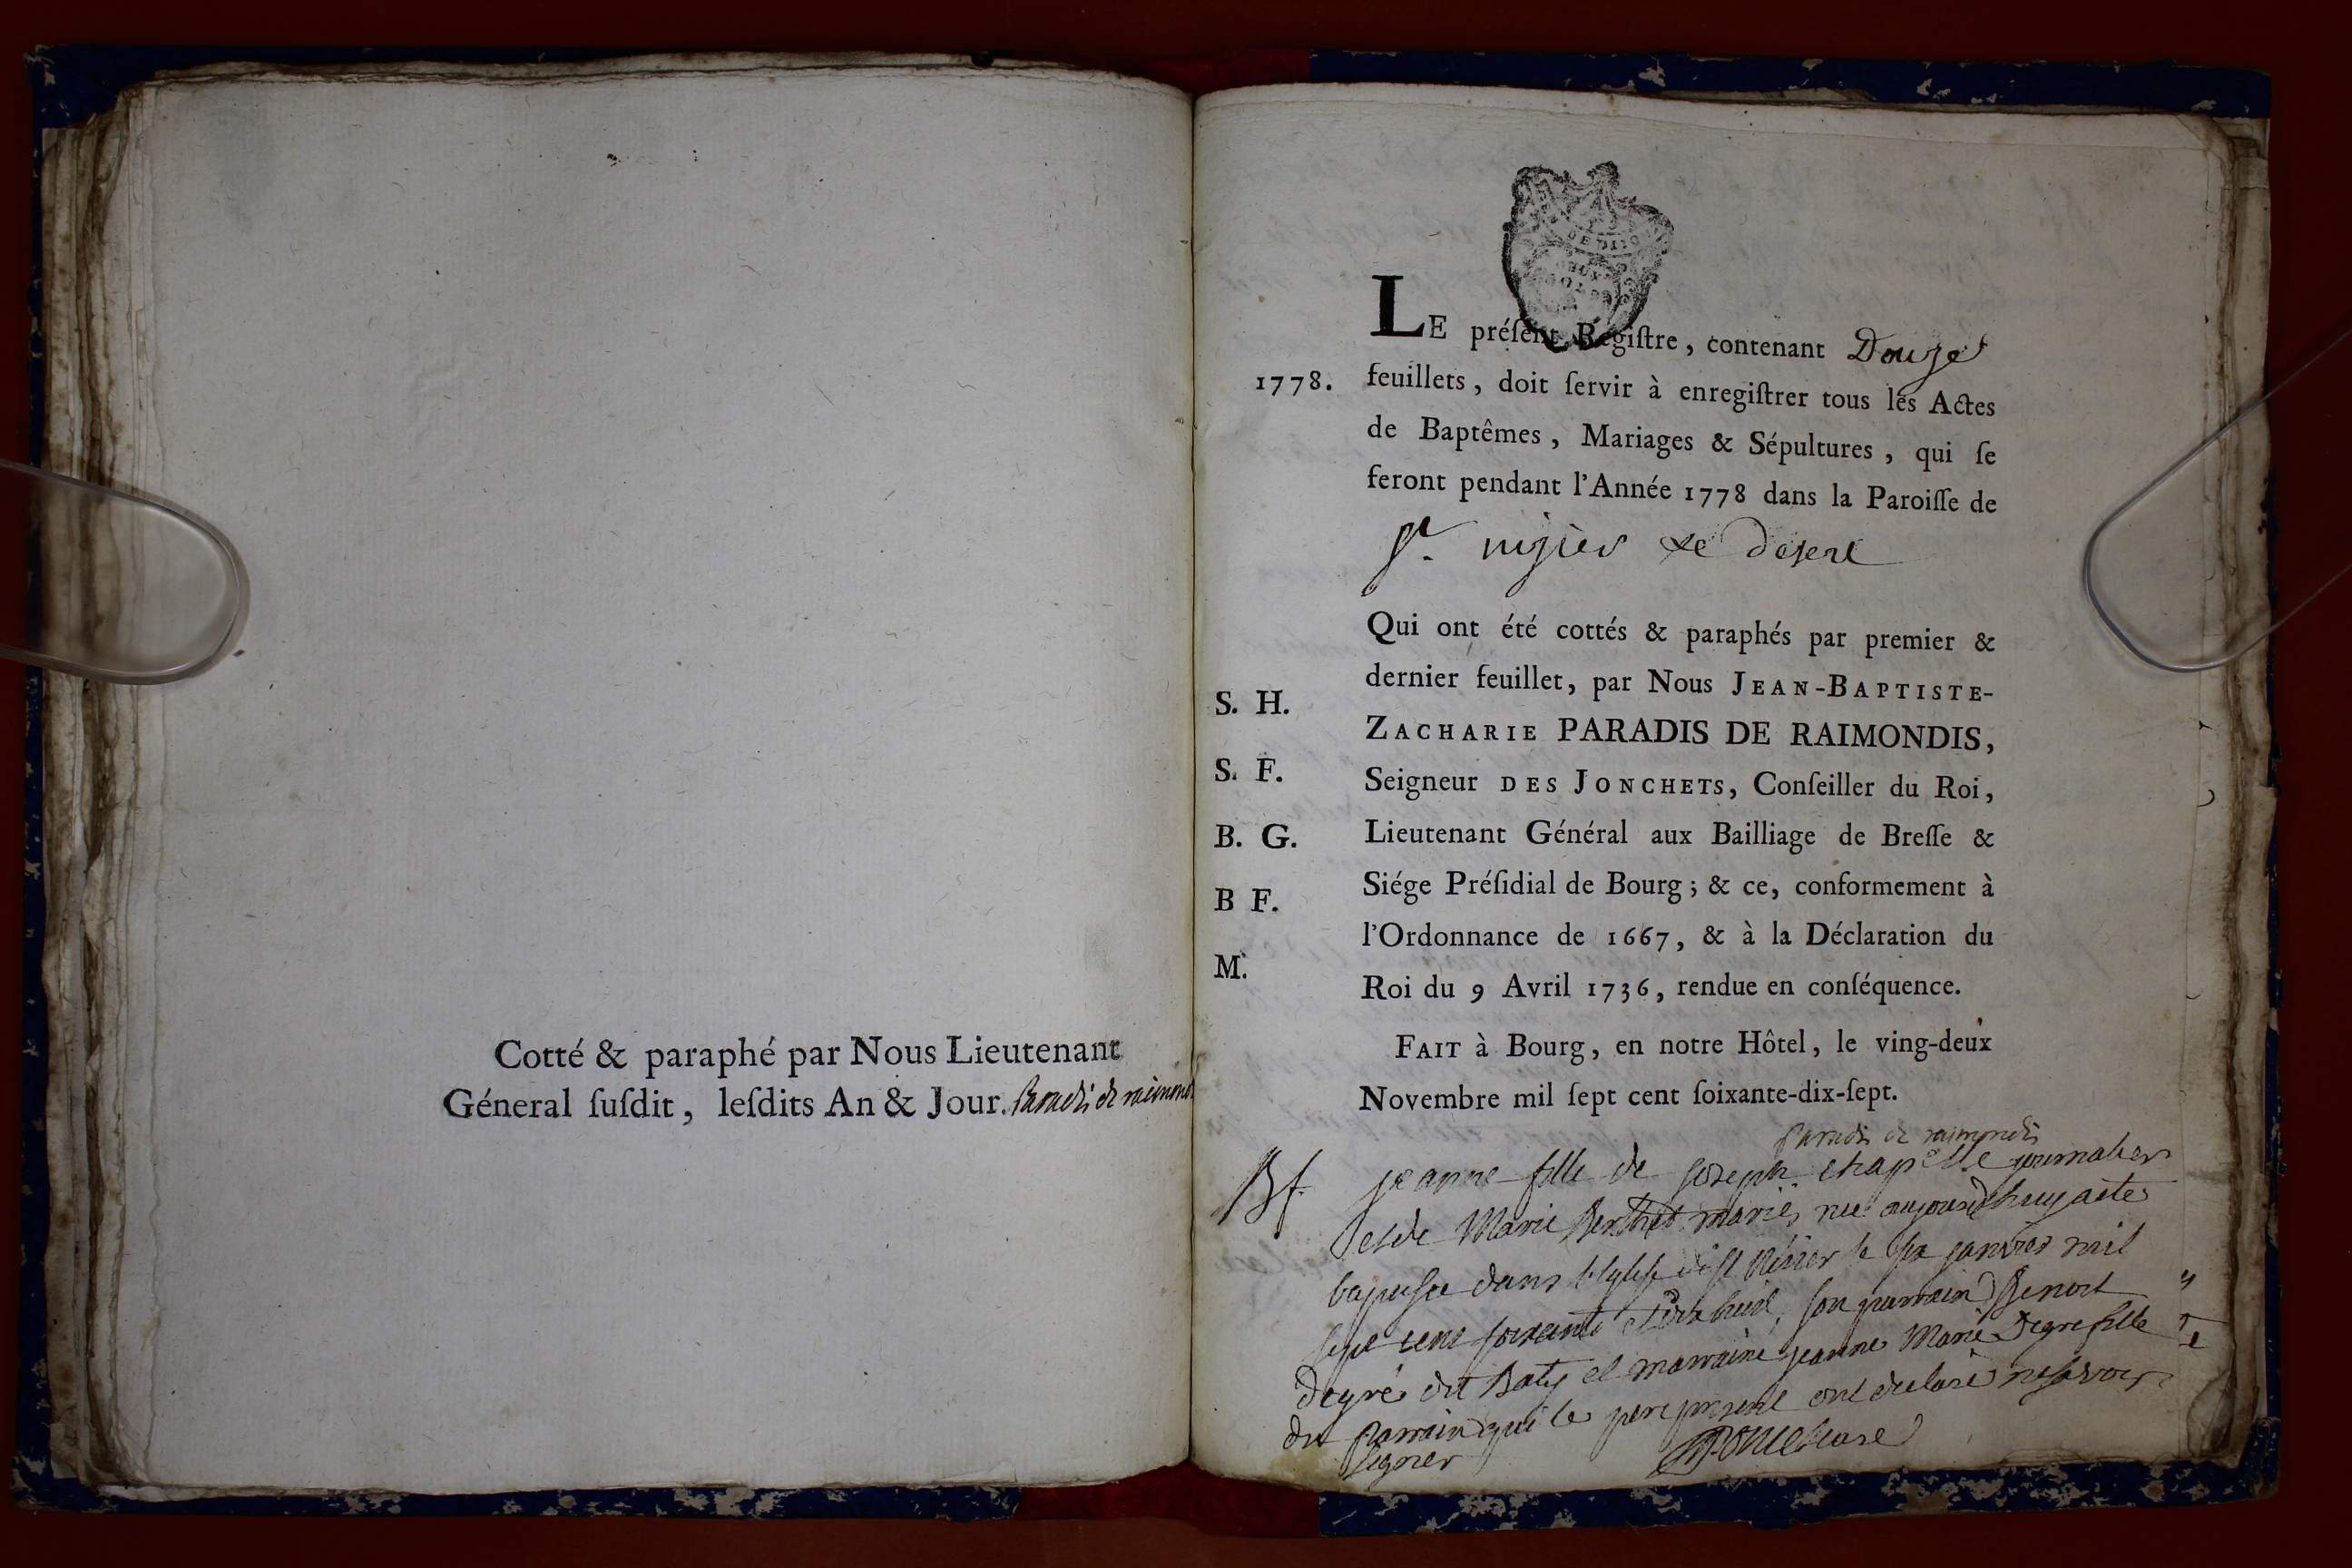 Cotté & paraphé par Nous Lieutenant
Géneral ſuſdit, leſdits An & Jour. Paradis de raimond
LE préſent Regiſtre, contenant Douze
1778. feuillets, doit ſervir à enregiſtrer tous les Actes
de Baptêmes, Mariages & Sépultures, qui ſe
feront pendant l'Année 1778 dans la Paroiſſe de
St. nizier le desert
Qui ont été cottés & paraphés par premier &
dernier feuillet, par Nous JEAN-BAPTISTE-
S. H.
ZACHARIE PARADIS DE RAIMONDIS,
S. F.
Seigneur DES JONCHETS, Conſeiller du Roi,
B. G.
Lieutenant Général aux Bailliage de Breſſe &
B F.
Siége Préſidial de Bourg; & ce, conformement à
l'Ordonnance de 1667, & à la Déclaration du
M.
Roi du 9 Avril 1736, rendue en conſéquence.
FAIT à Bourg, en notre Hôtel, le ving-deux
Novembre mil ſept cent ſoixante-dix-ſept.
Paradis de raimondis
Bf. jeanne fille de joseph chapelle journalier
et de Marie Berthet mariés née aujourdhuy a été
baptisée dans l'eglise de st Nizier le six janvier mil
sept cent soixante et dix huit, son parrain Benoit
degré dit Baty et marraine jeanne Marie Degré fille
du Parrain qui le pere present ont declaré ne savoir
signer